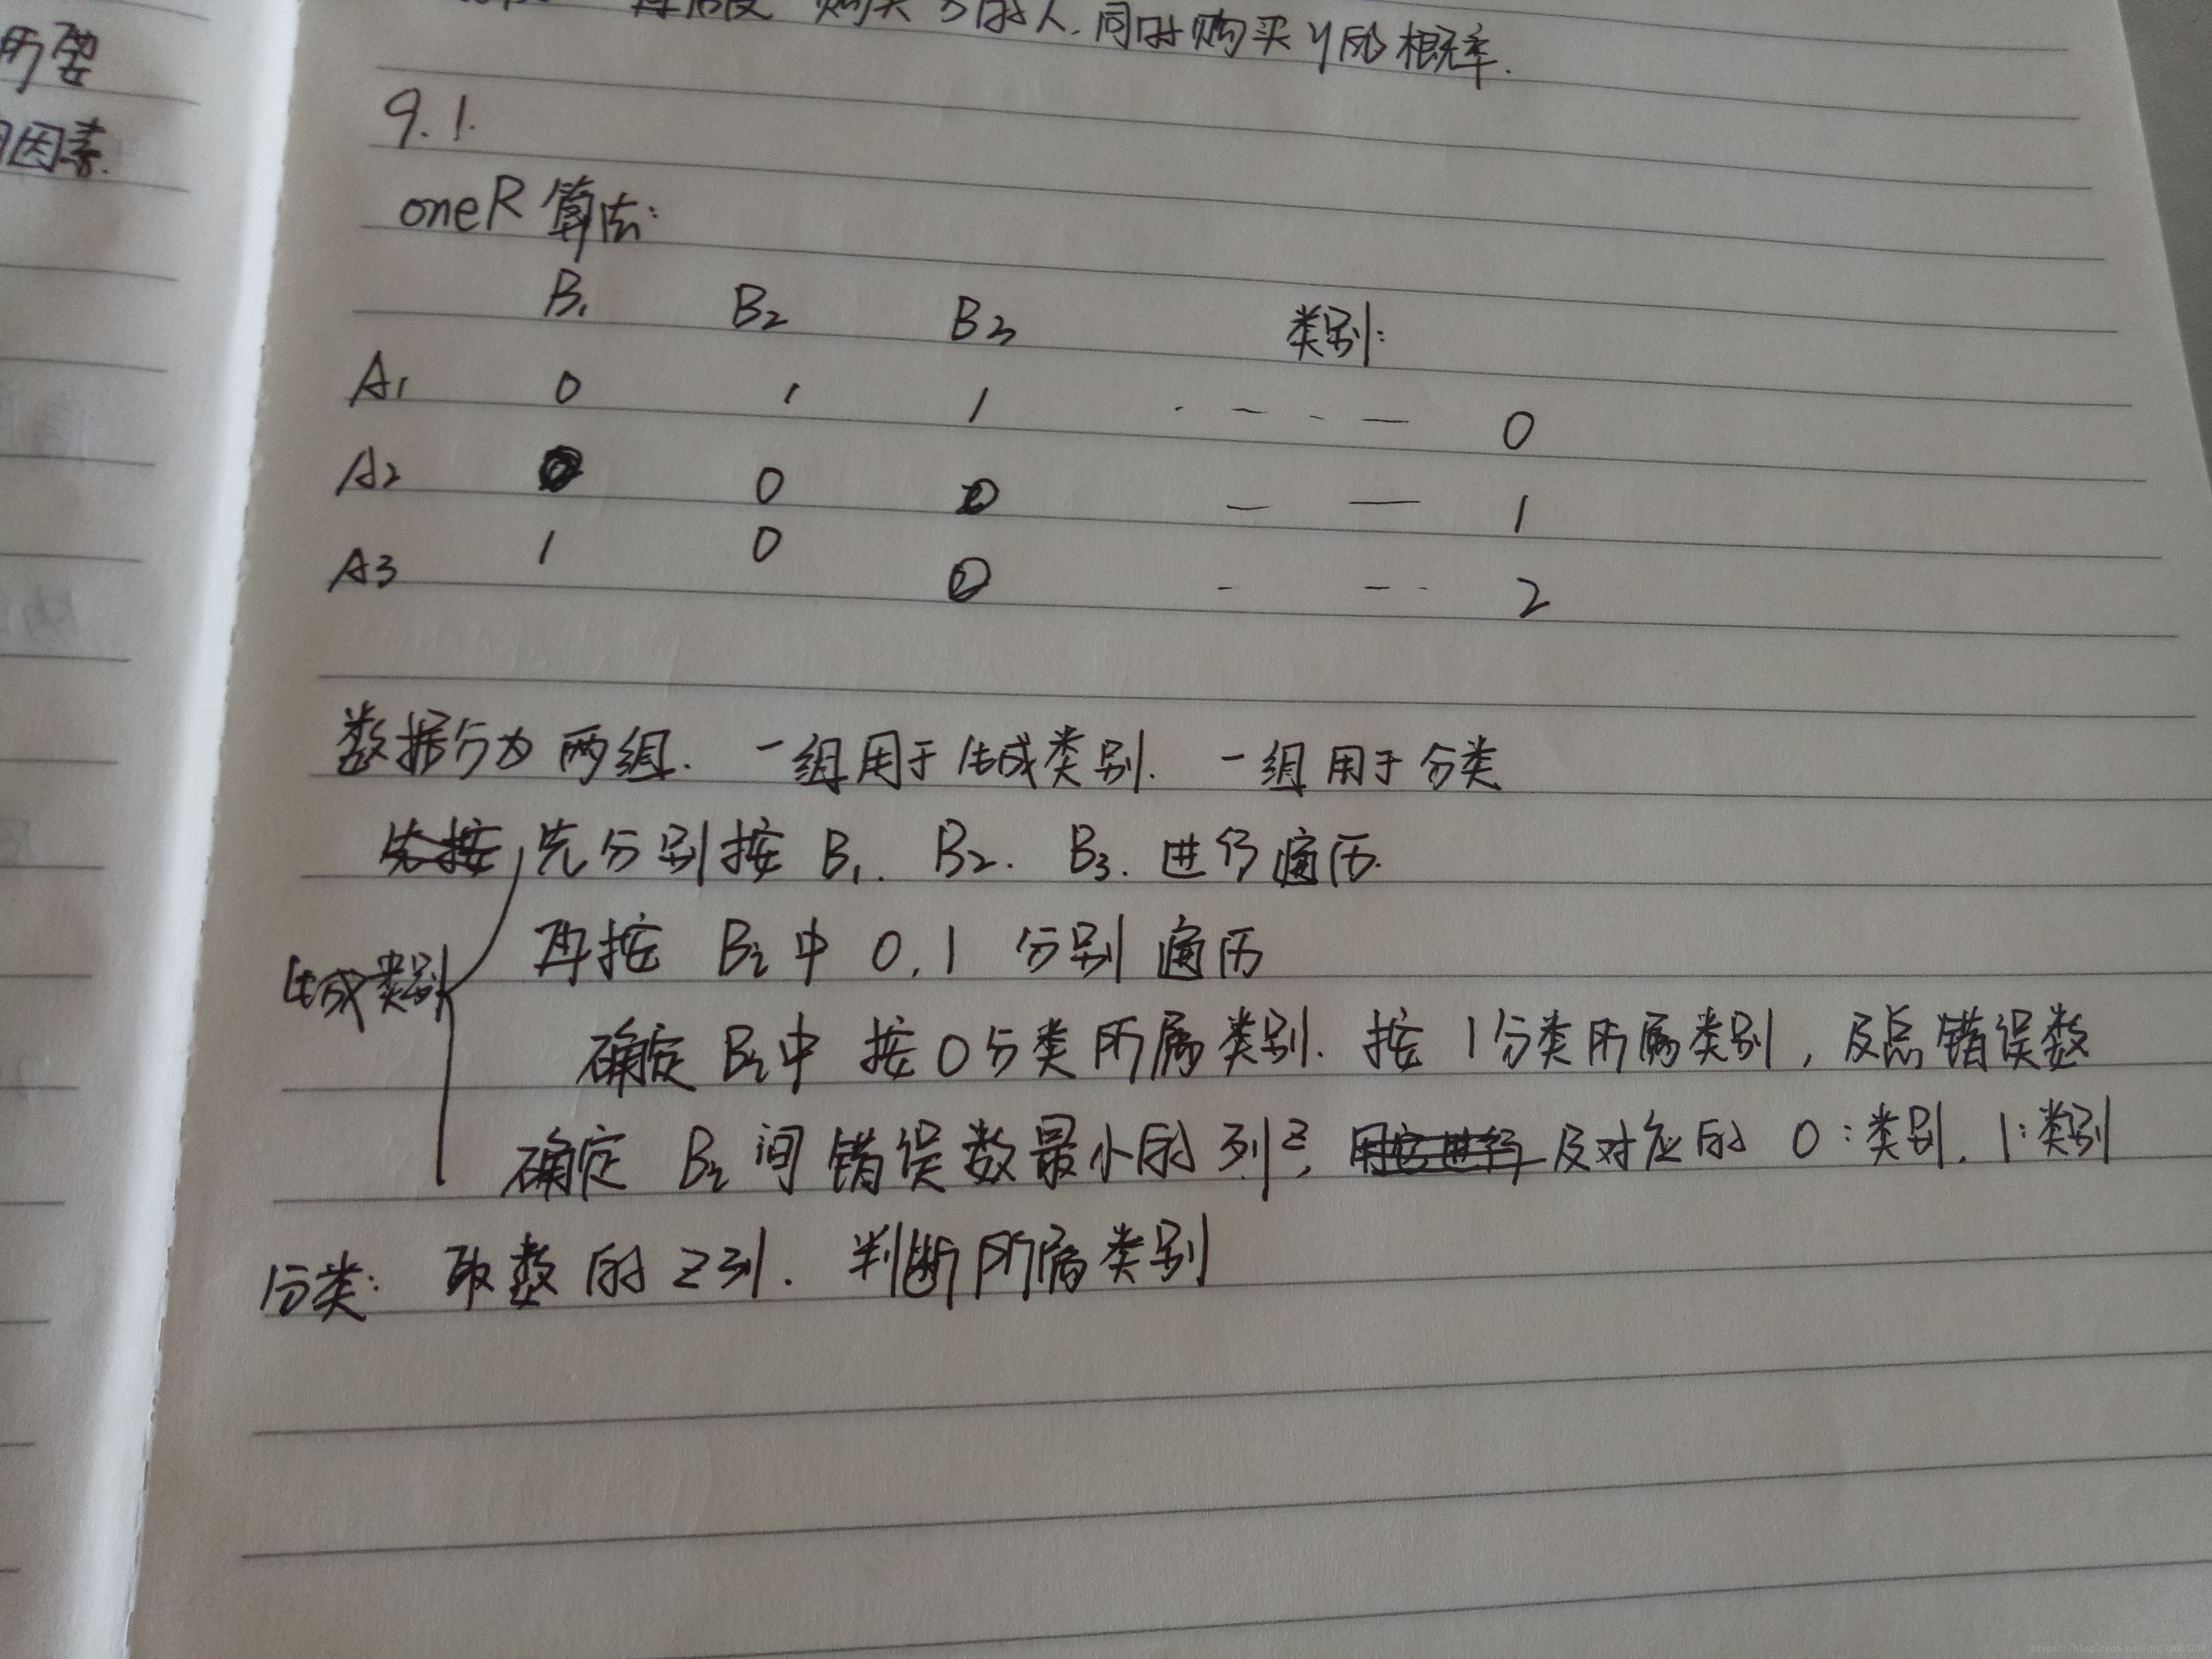 所要
因素.
购买 的人.同时购买 y的概率.
9.1.
oneR 算法:
B1 B2 B3 类别:
A1 0 1 1 · - · - 0
A2 0 0 0 - - 1
A3 1 0 0 - - - 2
数据分为 两组. 一组用于生成类别. 一组用于分类
先按, 先分别按 B1. B2. B3. 进行遍历.
再按 Bi中 0,1 分别遍历
生成类别
确定 Bi中 按0分类所属类别. 按 1分类所属类别, 及总错误数
确定 Bi间 错误数最小的列z, 及对应的 0:类别. 1:类别
分类: 取数的z列. 判断所属类别